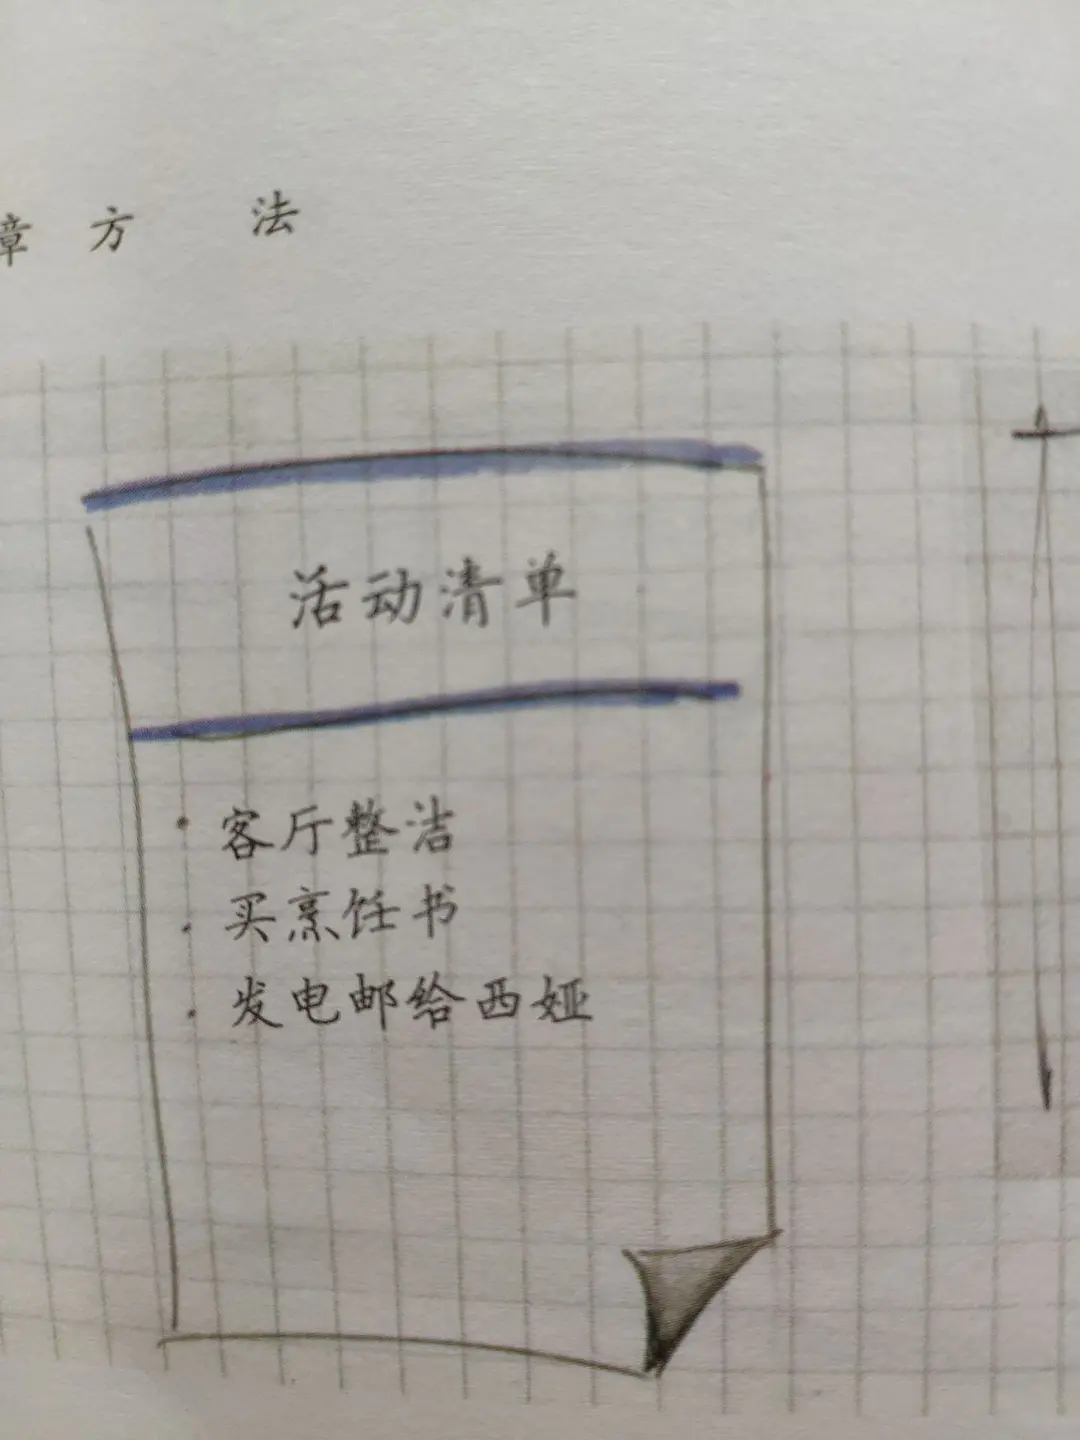 章 方 法
活动清单
· 客厅整洁
· 买烹饪书
· 发电邮给西娅